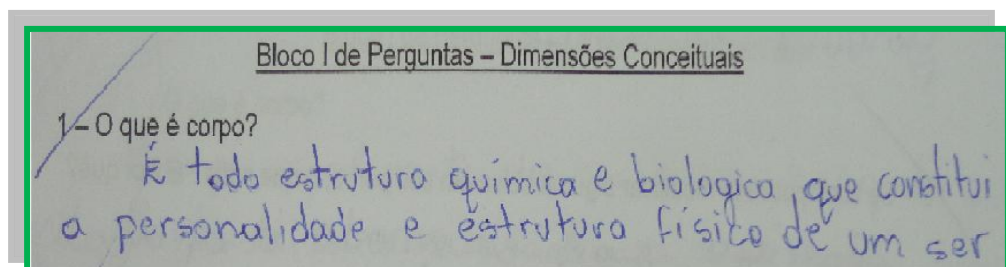 Bloco I de Perguntas – Dimensões Conceituais
1 – O que é corpo?
É todo estrutura química e biologica, que constitui
a personalidade e estrutura físico de um ser